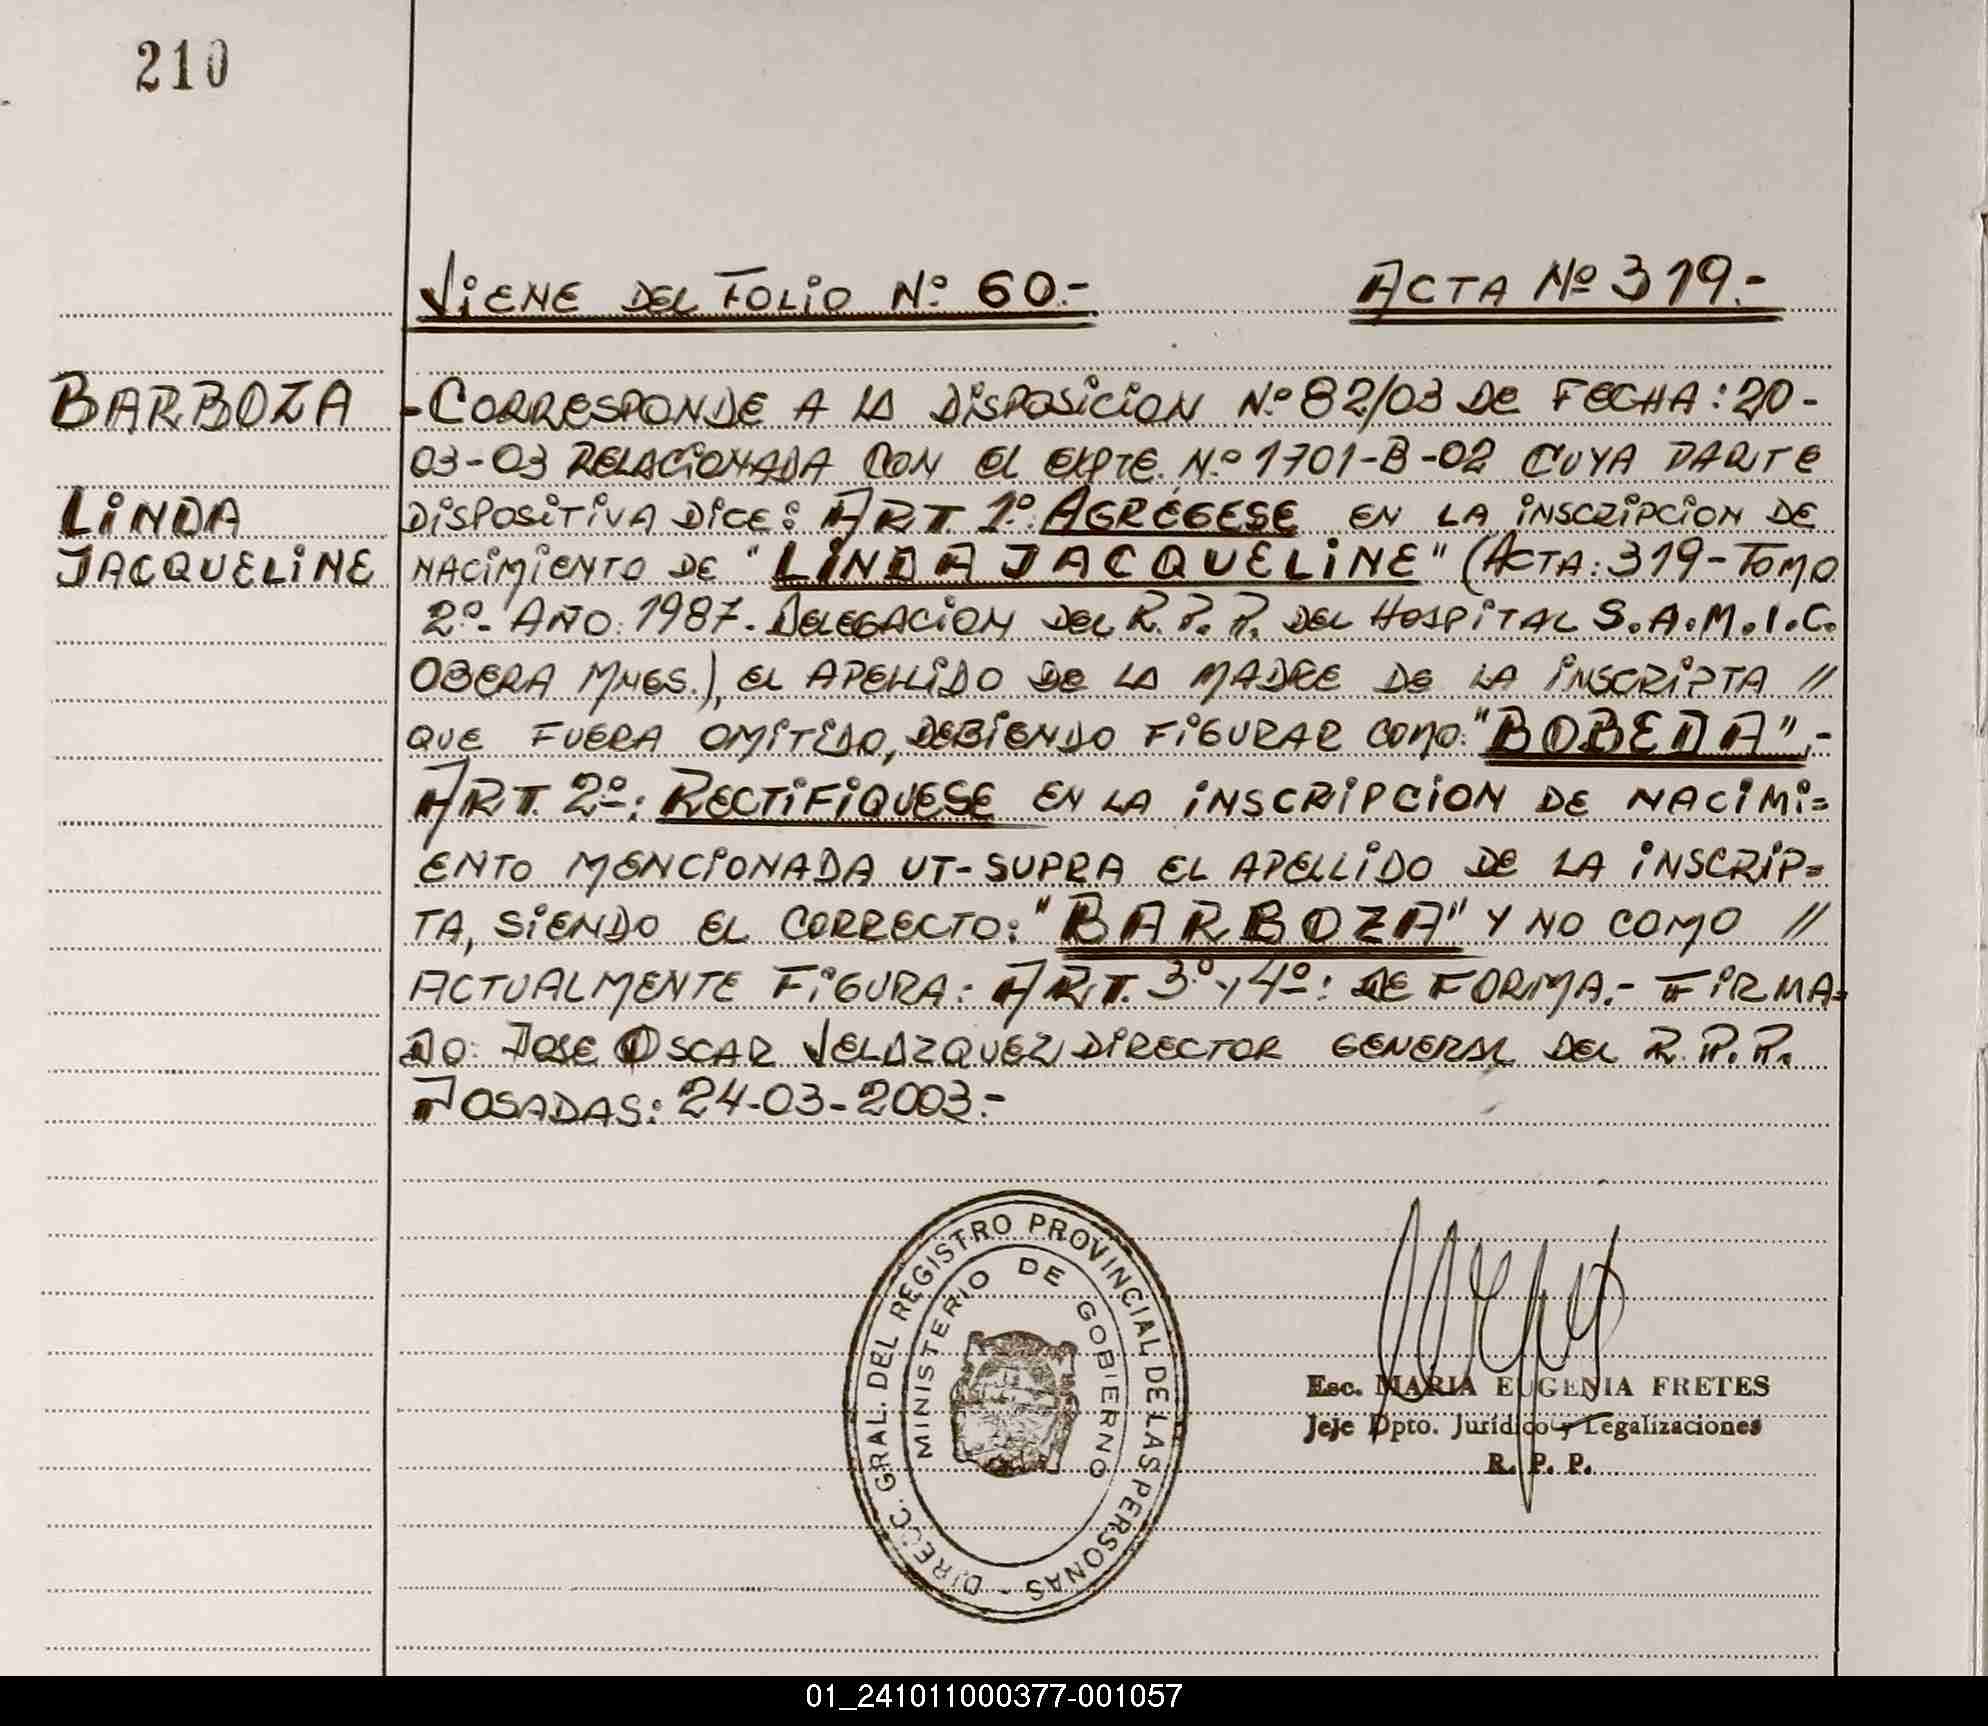 210
VIENE DEL FOLIO Nº 60.-
ACTA Nº 319.-
BARBOZA
LINDA
JACQUELINE
-CORRESPONDE A LA DISPOSICION Nº 82/03 DE FECHA: 20-
03-03 RELACIONADA CON EL EXPTE. Nº 1701-B-02 CUYA PARTE
DISPOSITIVA DICE: ART. 1º: AGRÉGESE EN LA INSCRIPCION DE
NACIMIENTO DE "LINDA JACQUELINE" (ACTA: 319-TOMO
2º- AÑO: 1987. DELEGACION DEL R.P.P. DEL HOSPITAL S.A.M.I.C.
OBERA MNES.), EL APELLIDO DE LA MADRE DE LA INSCRIPTA //
QUE FUERA OMITIDO, DEBIENDO FIGURAR COMO: "BOBEDA".-
ART. 2º: RECTIFIQUESE EN LA INSCRIPCION DE NACIMI=
ENTO MENCIONADA UT-SUPRA EL APELLIDO DE LA INSCRIP=
TA, SIENDO EL CORRECTO: "BARBOZA" Y NO COMO //
ACTUALMENTE FIGURA: ART. 3º y 4º: DE FORMA.- FIRMA=
DO: JOSE OSCAR VELAZQUEZ, DIRECTOR GENERAL DEL R.P.P.
POSADAS: 24-03-2003.-
DIRECC. GRAL. DEL REGISTRO PROVINCIAL DE LAS PERSONAS -
MINISTERIO DE GOBIERNO
Esc. MARIA EUGENIA FRETES
Jefe Dpto. Jurídico y Legalizaciones
R. P. P.
01_241011000377-001057